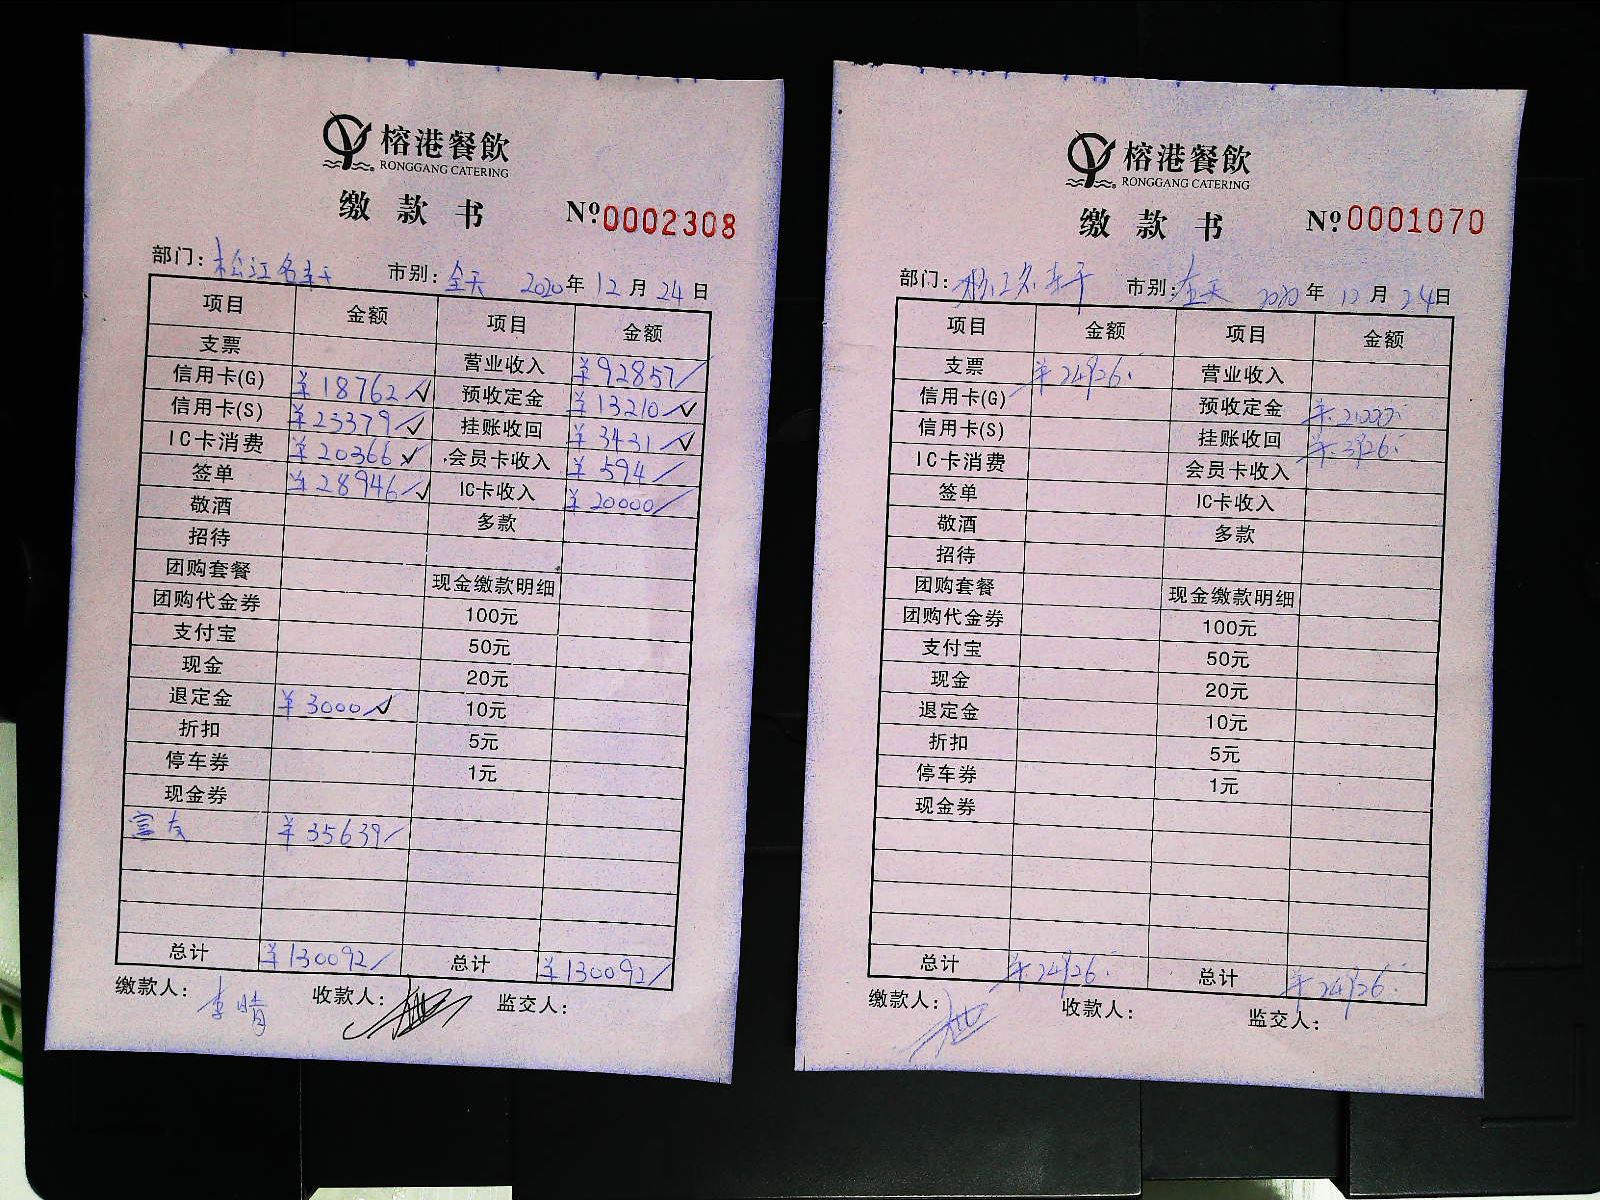 榕港餐飲
RONGGANG CATERING
缴款书 Nº0002308
部门：松江名轩 市别：全天 2020年12月24日
项目 金额 项目 金额
支票 营业收入 ¥92857
信用卡(G) ¥18762 预收定金 ¥13210
信用卡(S) ¥23379 挂账收回 ¥3431
IC卡消费 ¥20366 会员卡收入 ¥594
签单 ¥28946 IC卡收入 ¥20000
敬酒 多款
招待
团购套餐 现金缴款明细
团购代金券 100元
支付宝 50元
现金 20元
退定金 ¥3000 10元
折扣 5元
停车券 1元
现金券
¥35639
总计 ¥130092 总计 ¥130092
缴款人：李晴 收款人： 监交人：
榕港餐飲
RONGGANG CATERING
缴款书 Nº0001070
部门：松江名轩 市别：全天 2020年12月24日
项目 金额 项目 金额
支票 ¥24926 营业收入
信用卡(G) 预收定金 ¥21000
信用卡(S) 挂账收回 ¥3926
IC卡消费 会员卡收入
签单 IC卡收入
敬酒 多款
招待
团购套餐 现金缴款明细
团购代金券 100元
支付宝 50元
现金 20元
退定金 10元
折扣 5元
停车券 1元
现金券
总计 ¥24926 总计 ¥24926
缴款人： 收款人： 监交人：